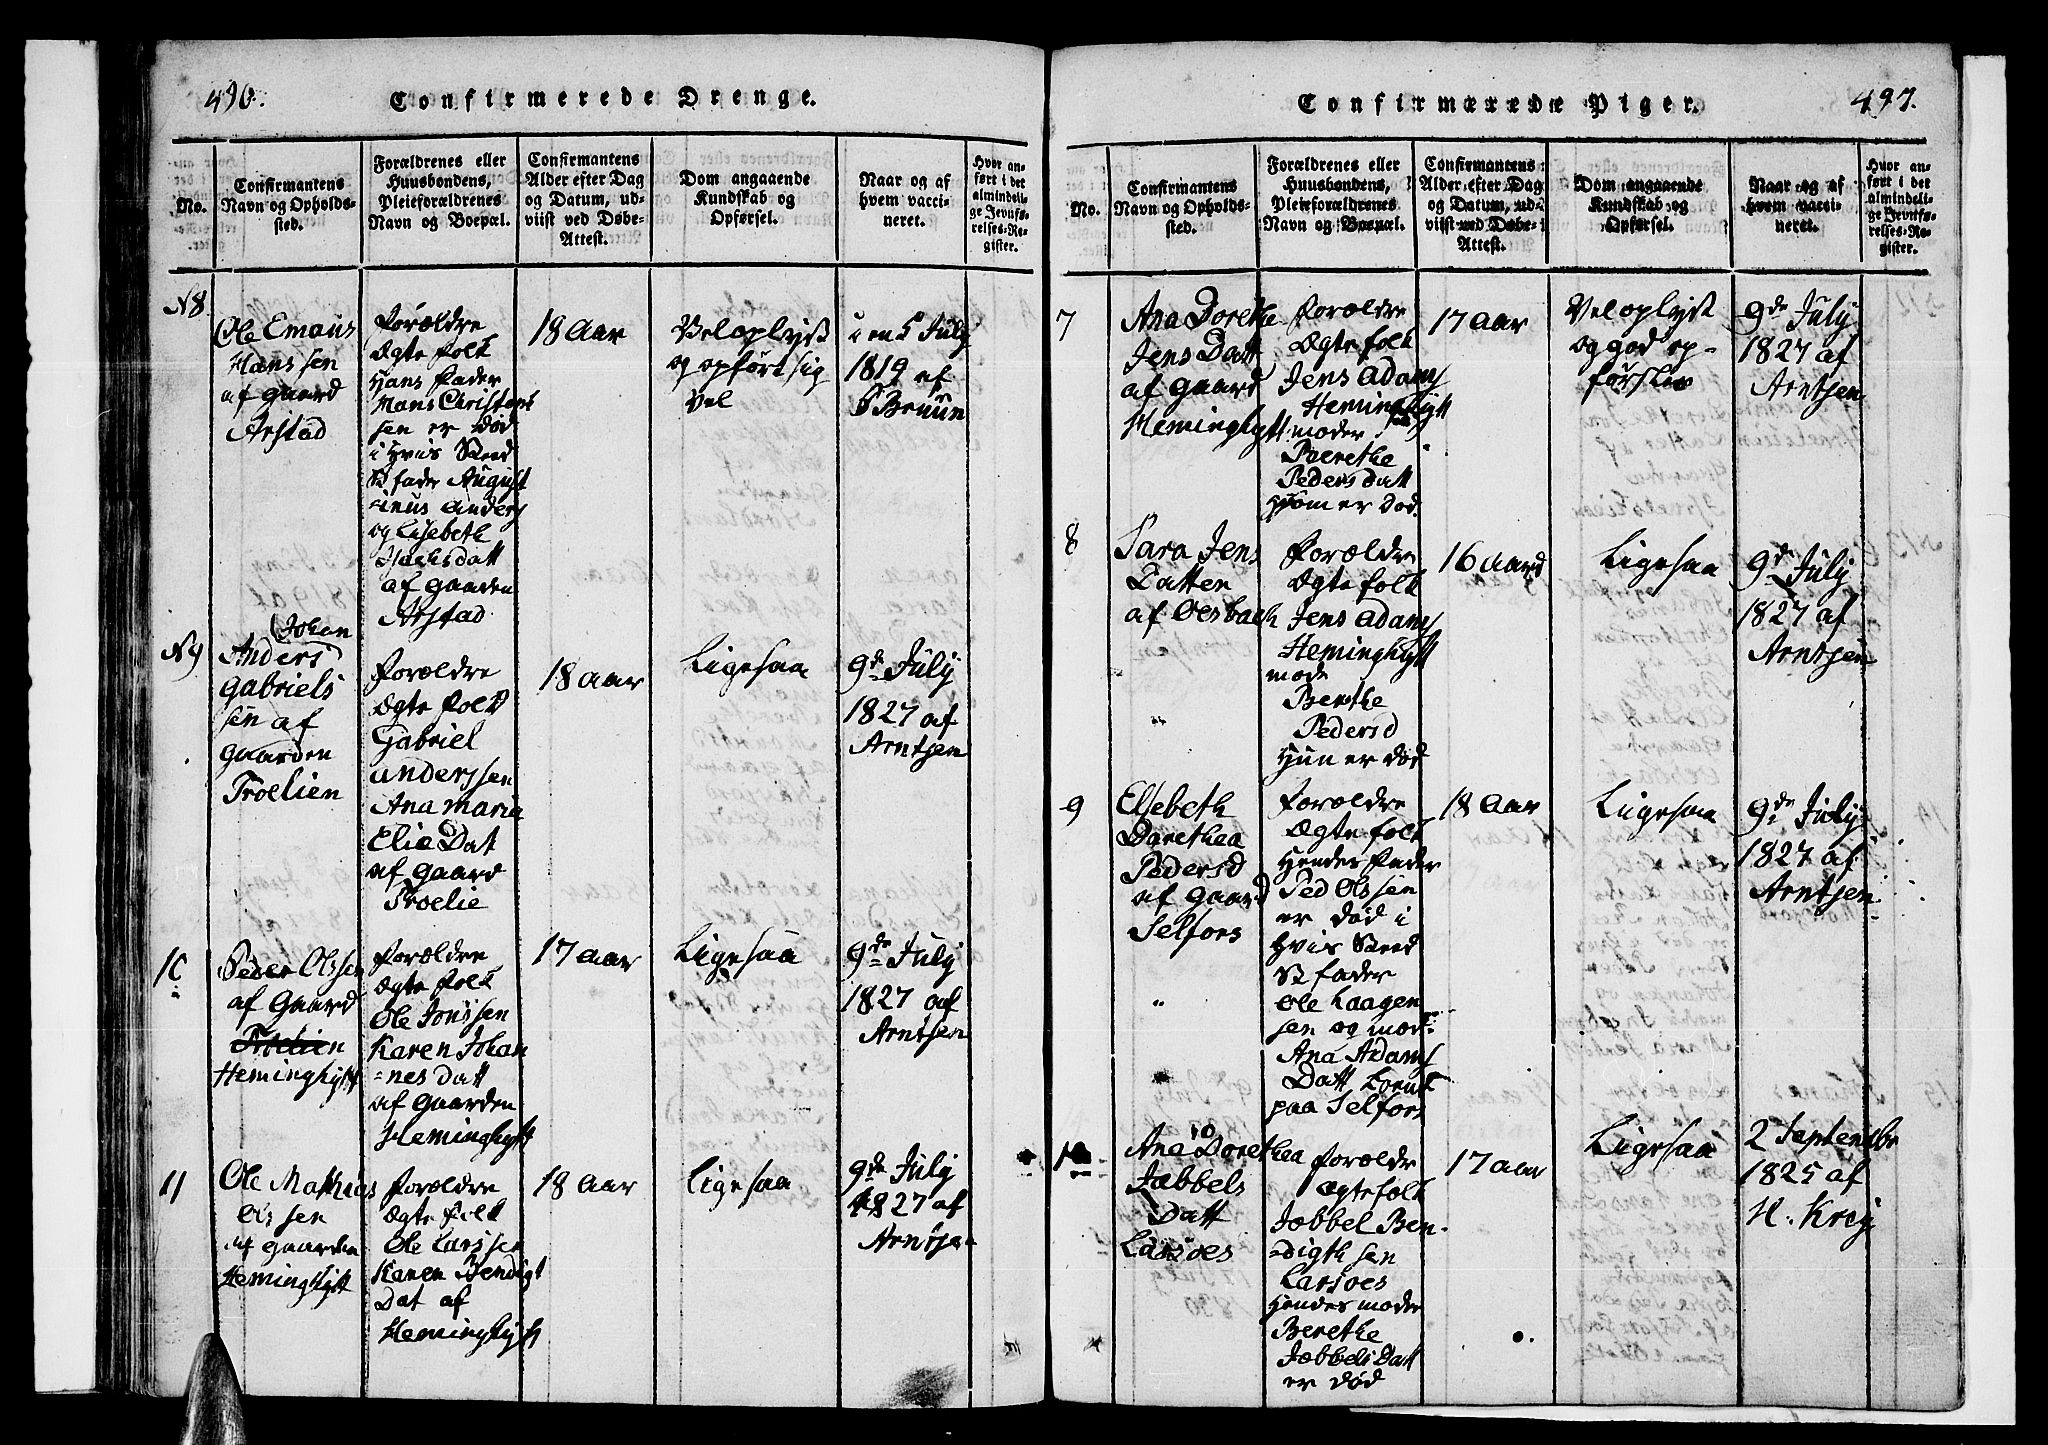 490.
Confirmerede Drenge.
No.
Confirmantens Navn og Opholds-sted.
Forældrenes eller Huusbondens, Pleieforældrenes Navn og Boepæl.
Confirmantens Alder efter Dag og Datum, ud-viist ved Døbe-Attest.
Dom angaaende Kundskab og Opførsel.
Naar og af hvem vacci-neret.
Hvor an-ført i det almindeli-ge Jevnfø-relses-Re-gister.
N8
Ole Emaus
Hanssen
af gaard
Arstad
Forældre
Ægte folk
Hans Fader
Hans Christens
sen er Død
i Hvis Sted
St fader August
inus Anders
og Lisebeth
af Gaarden
Arstad
18 Aar
Vel oplyst
og opført sig
Vel
5 July
1819 af
Bruun
N9
(Johan
Anders
Gabriels
sen af
Gaarden
Troelien
Forældre
Ægte Folk
Gabriel
anderssen
Ana Maria
Elia Dat
af Gaard
Troelie
18 Aar
Ligesaa
9de July
1827 af
Arntsen
10
Peder Olssen
af Gaard
Troelien
Heminghytt
Forældre
Ægte folk
Ole Jonssen
Karen Johan
=nes datt
af Gaarden
Heminghytt
17 Aar
Ligesaa
9de July
1827 af
Arntsen
11
Ole Mathias
Olssen
af gaarden
Heminghytt
Forældre
Ægte Folk
Ole Larssen
Karen Bendigt
Dat af
Heminghytt
18 Aar
Ligesaa
9de July
1827 af
Arntsen
497.
Confirmerede Piger.
No.
Confirmantens Navn og Opholds-sted.
Forældrenes eller Huusbondens, Pleieforældrenes Navn og Boepæl.
Confirmantens Alder efter Dag og Datum, ud-viist ved Døbe-Attest.
Dom angaaende Kundskab og Opførsel.
Naar og af hvem vacci-neret.
Hvor an-ført i det almindeli-ge Jevnfø-relses-Re-gister.
7
Ana Dorethe
Jens Datt
af Gaard
Heminghytt
Forældre
Ægte folk
Jens Adams
Heminghytt
moder
Berethe
Peders datt
som er Død.
17 Aar
Vel oplyst
og god op-
førsler
9de July
1827 af
Arntsen
8
Sara Jens
Datter
af Oesbach
Forældre
Ægte folk
Jens Adams
Heminghytt
mode
Berthe
Pedersd
Hun er død
16 Aar
Ligesaa
9de July
1827 af
Arntsen
9
Elsebeth
Darethea
Pedersd
af Gaard
Selfors
Forældre
Ægte folk
Hendes Fader
Ped Olssen
er død i
Hvis Sted
St fader
Ole Haagen
sen og mod:
Ana Adams
Datt
paa Selfors
18 Aar
Ligesaa
9de July
1827 af
Arntsen
10
Ana Dorethea
Jæbbels
Datt
Larsoes
Forældre
Ægtefolk
Jæbbel Ben-
=digthsen
Larsoes
Hendes moder
Berethe
Jæbbels Datt
er død
17 Aar
Ligesaa
2 Septembr
1825 af
H. Krey